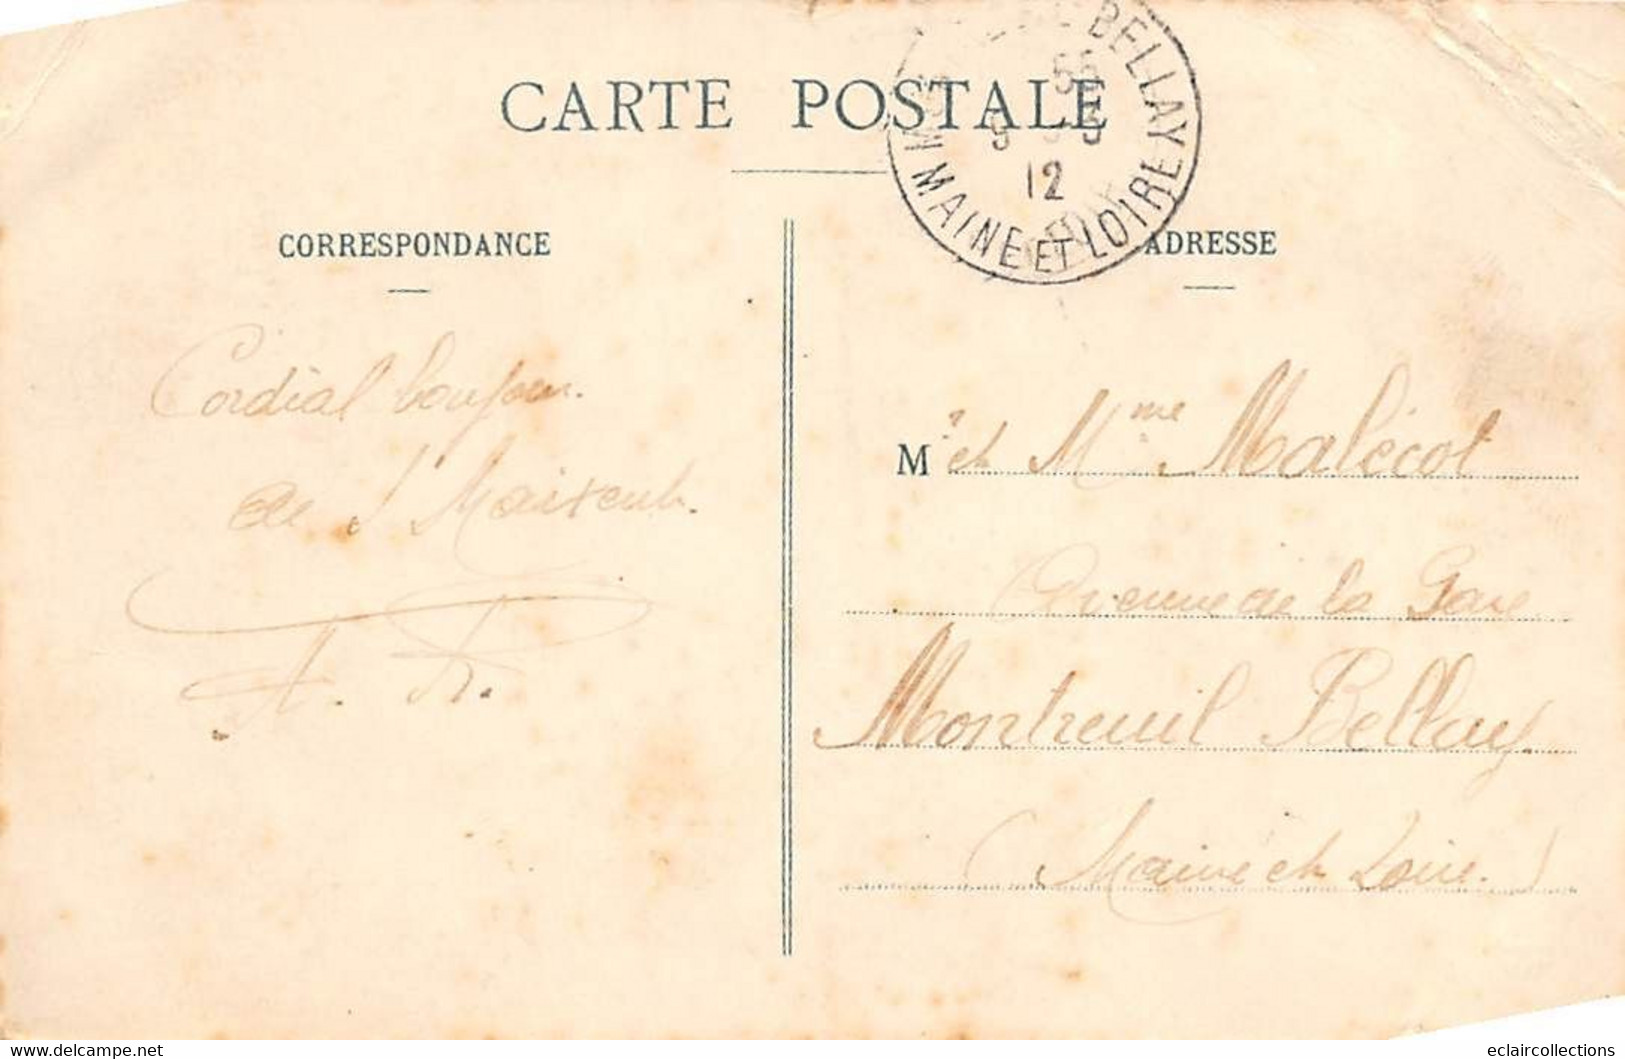 CARTE POSTALE
BELLAY
12
MAINE ET LOIRE
CORRESPONDANCE
ADRESSE
Cordial bonjour.
de St Maixent.
A. R.
M r et Mme Malécot
Avenue de la Gare
Montreuil Bellay
(Maine et Loire.)
Delcampe.net
eclaircollections